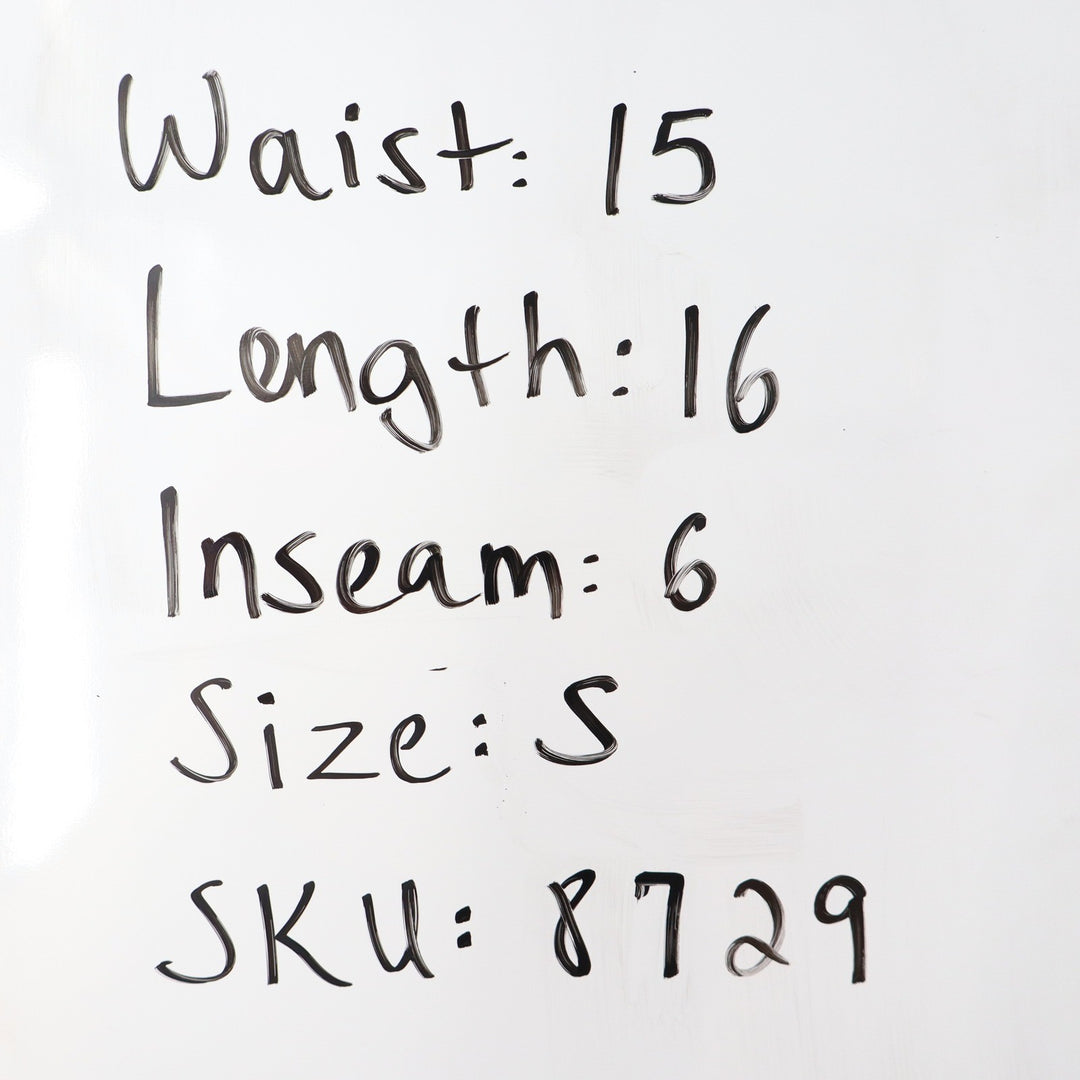 Waist: 15
Length: 16
Inseam: 6
Size: S
SKU: 8729